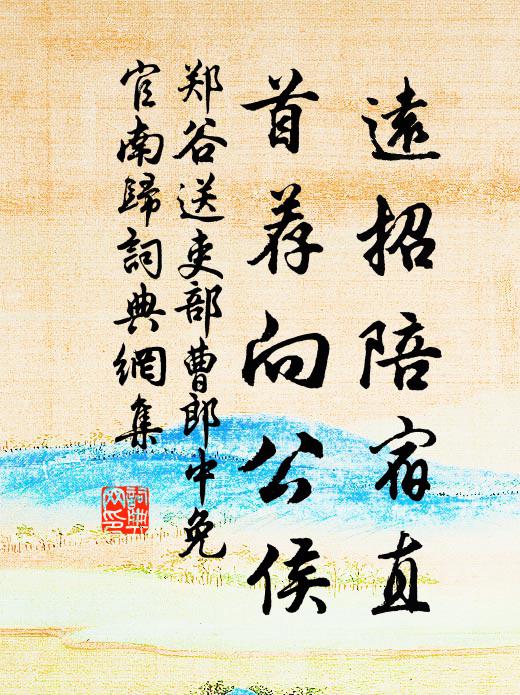 遠招陪宿直
首荐向公侯
郑谷送吏部曹郎中免
官南歸詞典網集
詞典
网印